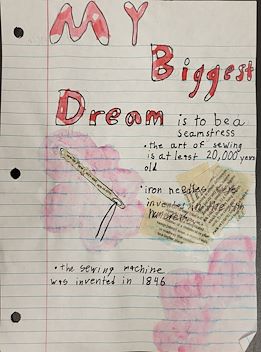 MY
Biggest
Dream is to be a
seamstress
• the art of sewing
is at least 20,000 years
old
• iron needles were
invented in the 14th
• the sewing machine
was invented in 1846